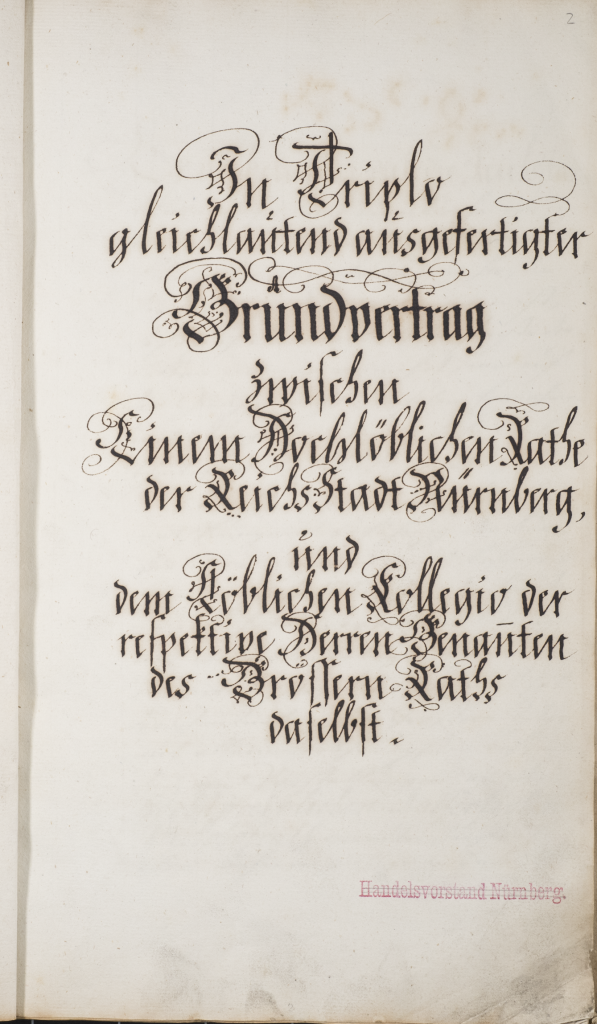 2
In Triplo
gleichlautend ausgefertigter
Grundvertrag
zwischen
Einem Hochlöblichen Rathe
der ReichsStadt Nürnberg,
und
dem Löblichen Collegio der
respektive Herren Genan̄ten
des Grossern Raths
daselbst.
Handelsvorstand Nürnberg.